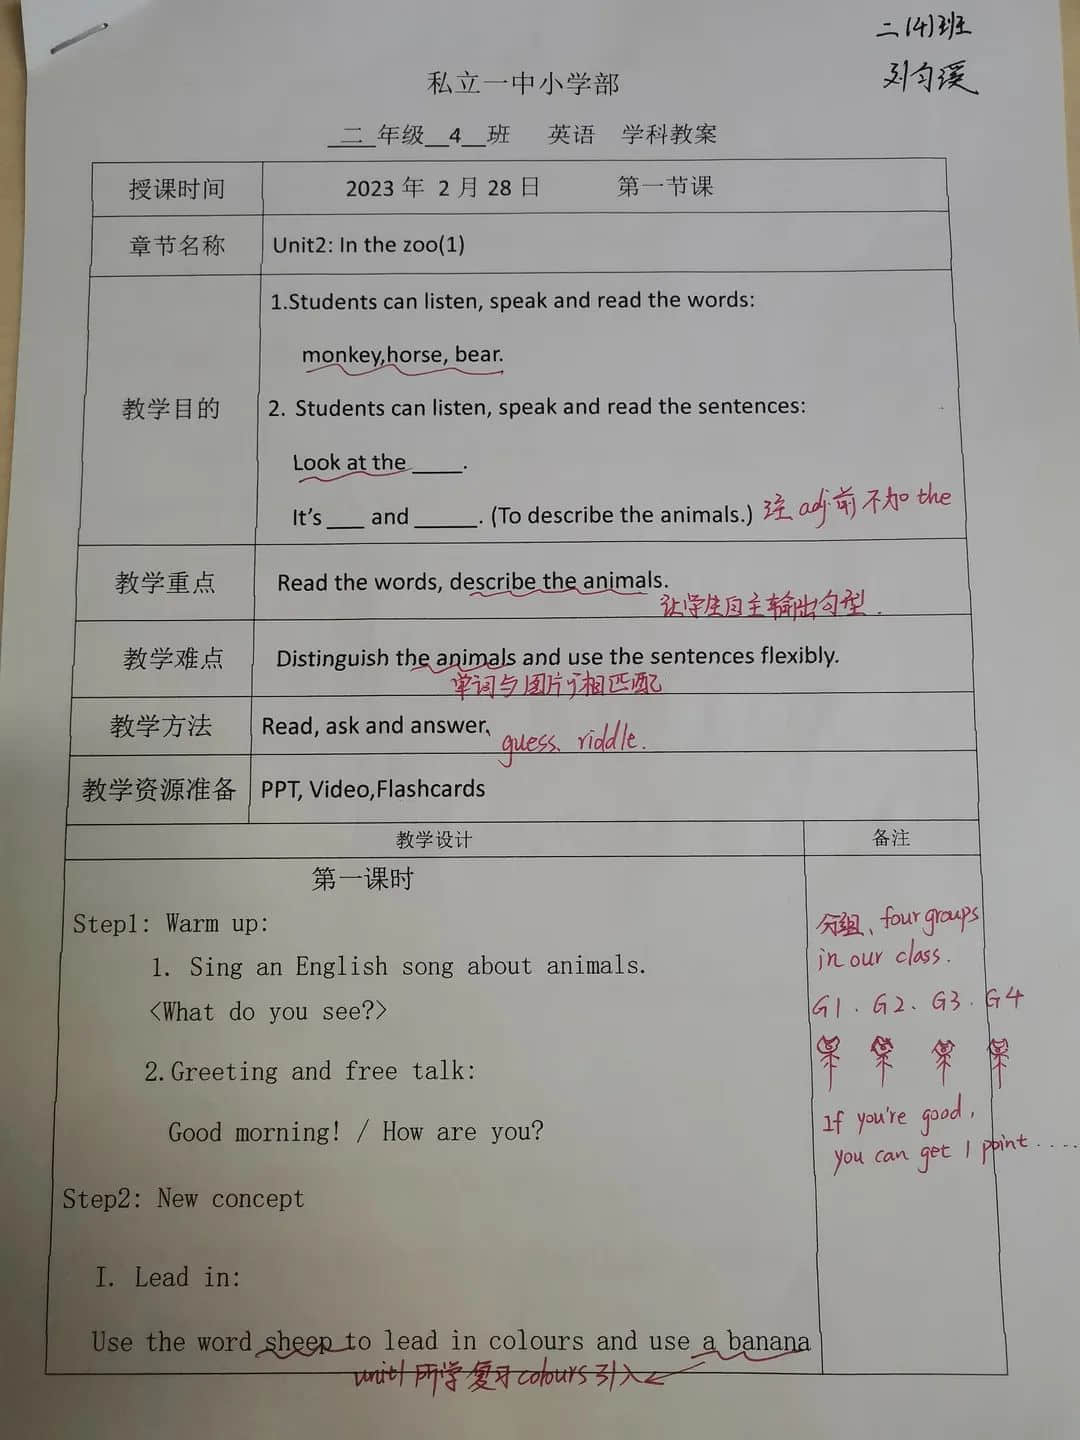 二(4)班
刘匀溪
私立一中小学部
二 年级 4 班 英语 学科教案
授课时间 2023 年 2 月 28 日 第一节课
章节名称 Unit2: In the zoo(1)
教学目的
1.Students can listen, speak and read the words:
monkey,horse, bear.
2. Students can listen, speak and read the sentences:
Look at the ____.
It's ___ and _____. (To describe the animals.) 注 adj前不加 the
教学重点 Read the words, describe the animals.
让学生自主输出句型.
教学难点 Distinguish the animals and use the sentences flexibly.
单词与图片相匹配
教学方法 Read, ask and answer、guess、riddle.
教学资源准备 PPT, Video,Flashcards
教学设计 备注
第一课时
Step1: Warm up:
1. Sing an English song about animals.
<What do you see?>
2.Greeting and free talk:
Good morning! / How are you?
Step2: New concept
I. Lead in:
Use the word sheep to lead in colours and use a banana
unit1所学复习colours引入
分组、four groups
in our class.
G1. G2、G3. G4
If you're good,
you can get 1 point....